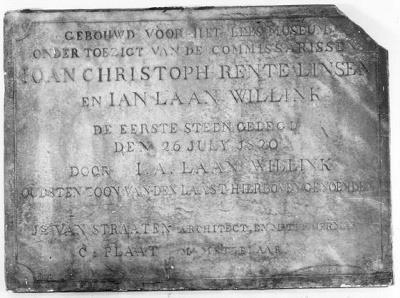 GEBOUWD VOOR HET LEES MOSEUM
ONDER TOEZIGT VAN DE COMMISSARISSEN
IOAN CHRISTOPH RENTE LINSEN
EN IAN LAAN WILLINK
DE EERSTE STEEN GELEGD
DEN 26 JULY 1820
DOOR I. A. LAAN WILLINK
OUDSTEN ZOON VAN DEN LAAST HIERBOVEN GENOEMDEN
Js VAN STRAATEN ARCHITECT, EN
C: PLAAT Mr METZELAAR